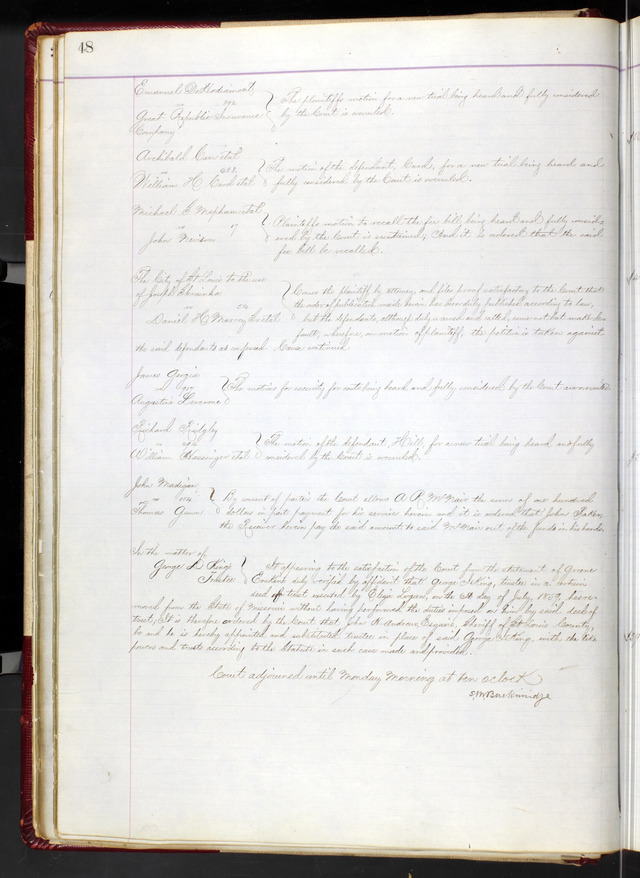 48
Emanuel
vs 392
Great Republic Insurance
Company
The plaintiffs motion for a new trial being heard and fully considered
by the Court is overruled.
Archibald Carr et al
vs
William H. Card et al
The motion of the defendant, Card, for a new trial being heard and
fully considered by the Court is overruled.
Michael et al
vs 17
John
Plaintiffs motion to recall the fee bill being heard and fully consid-
ered by the Court is sustained, And it is ordered that the said
fee bill be recalled.
The City of St Louis to the use
of Joseph
vs
Daniel H. et al
Comes the plaintiff by attorney, and files proof satisfactory to the Court that
the order of publication made herein has been duly published according to law,
but the defendants, although duly called, come not but make de-
fault; wherefore, on motion of plaintiff, the petition is taken against
the said defendants as confessed. Cause continued
James
vs
Augustus
The motion for security for costs being heard and fully considered by the Court
Richard Ridgley
vs
William et al
The motion of the defendant, Hill, for a new trial being heard and fully
considered by the Court is overruled.
John Madigan
vs
Thomas Gunn
By consent of parties the Court allows A R McNair the sum of one hundred
dollars in part payment for his services herein and it is ordered that John
the Receiver herein pay the said amount to said McNair out of the funds in his hands.
In the matter of
George S. King
Trustee
It appearing to the satisfaction of the Court from the statement of
duly verified by affidavit that George S. King, trustee in a certain
deed of trust executed by on the day of July 1859, has re-
moved from the State of Missouri without having performed the duties imposed on him by said deed of
trust; It is therefore ordered by the Court that John Esquire, Sheriff of St Louis County,
be and he is hereby appointed and substituted trustee in place of said George S. King, with the like
powers and trusts according to the Statute in such case made and provided.
Court adjourned until Monday Morning at ten oclock
S. M Breckinridge